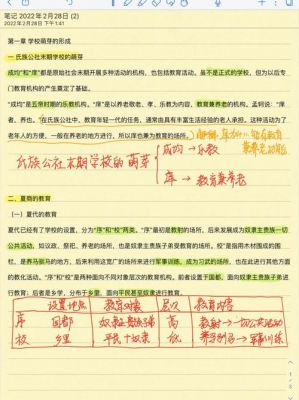 笔记 2022年2月28日 (2)
2022年2月28日 下午1:41
第一章 学校萌芽的形成
一 氏族公社末期学校的萌芽
成均"和"庠"都是原始社会末期开展多种活动的机构，也包括教育活动，虽不是正式的学校，但为以后专
门教育机构的产生奠定了基础。
"成均"是五帝时期的乐教机构。"庠"是以养老敬老、孝、乐教为内容，教育兼养老的机构。孟轲说："庠
者、养也。"在氏族公社中，教育年轻一代的任务，通常由具有丰富生活经验的老人承担。这种活动为了
老年人的方便，一般在养老的地方进行，所以庠也兼为教育的场所。
兼养老的功能
氏族公社末期学校的萌芽
成均→乐教
庠→教育兼养老
二、夏商的教育
（一）夏代的教育
夏代已经有了学校的设置，分为"序"和"校"两类。"序"最初是教射的场所，后来发展成为奴隶主贵族一切
公共活动，如议政、祭祀、养老的场所，也是奴隶主贵族子弟受教育的场所。校"是指用木材围成的围
栏，是养马驯马的地方，后来利用这宽广的场所来进行军事训练，成为习武的场所，也在此进行其他方面
的教化活动。"序"和"校"是两种面向不同对象层次的教育机构。前者设置于国都，面向奴隶主贵族子弟进
行教育；后者是乡学，分布于乡里，面向平民甚至奴隶进行教育。
设置地点 教育对象 层次 教育内容
序 国都 奴隶主贵族子弟 高 教射→一切公共活动
校 乡里 平民+奴隶 低 养马驯马→军事训练